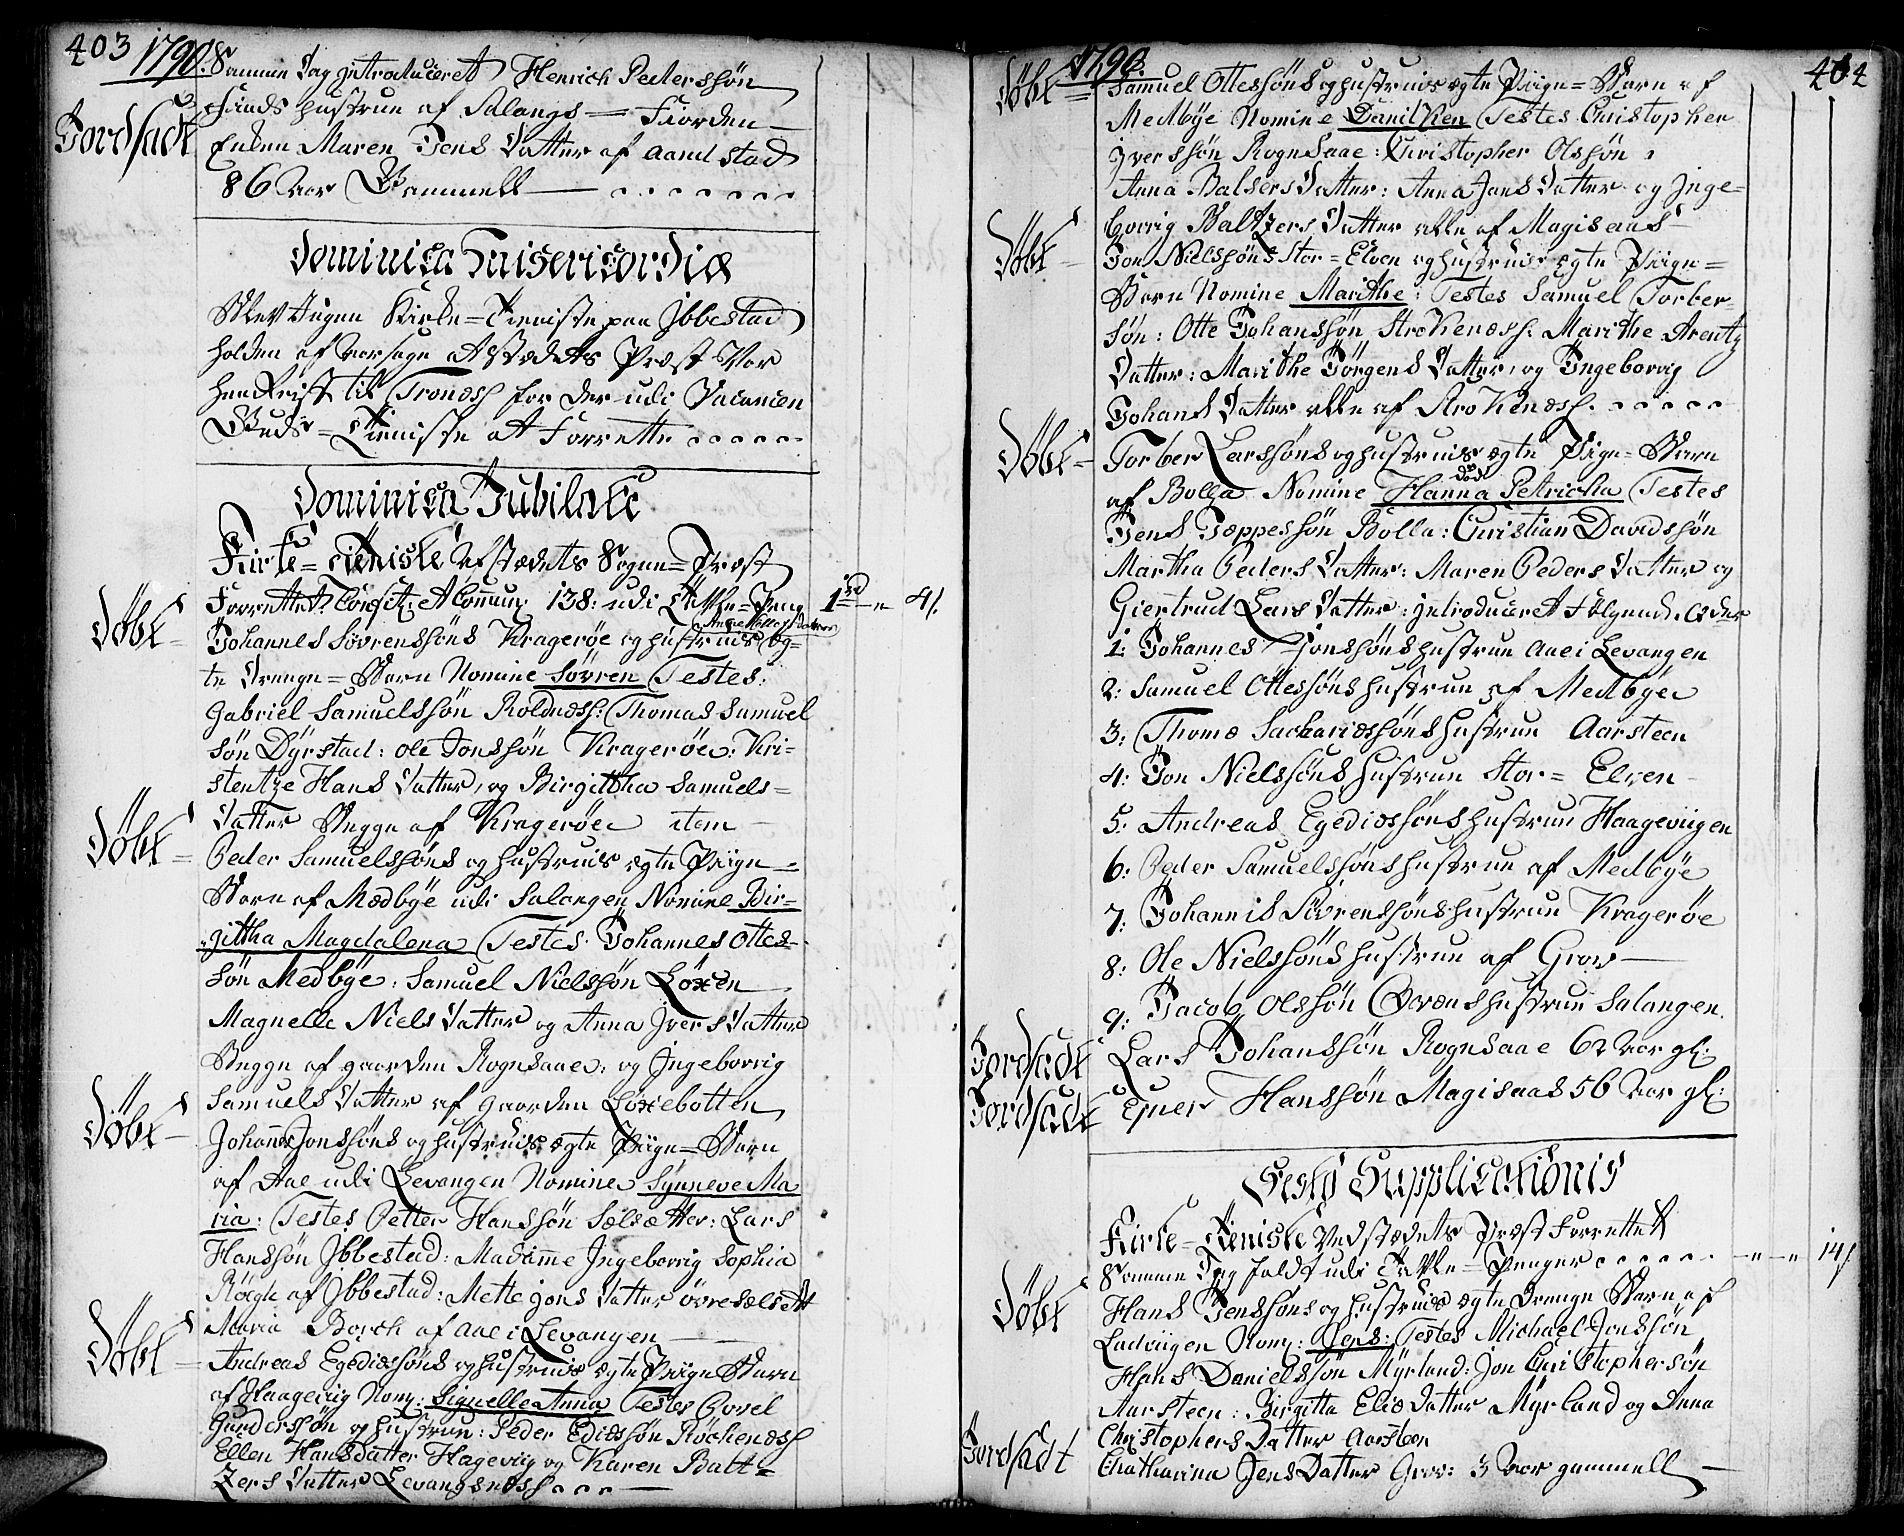 403 1790.
Samme Dag introduceret Henrich Pederssøn
hustrue af Salangs= Fiorden
Jordsadt
Enken Maren Jens Datter af Aamstad
86 Aar Gammell
Dominica Misericordiæ
Blev ingen Kirke=Tieniste paa Jbbestad
holden af Aarsage At Stædets Præst Var
hen Reist til Tronæss for der udi Vacancen
Guds=Tieniste At Forrette
Dominica Jubilate
Kirke=Tieniste Af Stædets Sogne=Præst
Forrettet: Confit: Et Commun: 138: udi Tavle=Peng 1 rd " 4 s.
Døbt=
Johannes Søvrenssøns Kragerøe og hustrues Eg=
te Drenge=Barn Nomine Søvren Testes:
Gabriel Samuelssøn Roldnæss: Thomas Samuel
søn Dÿrstad: Ole Jonssøn Kragerøe: Kri=
stentze Hans Datter, og Birgittha Samuels=
Datter Begge af Kragerøe item
Døbt=
Peder Samuelssøns og hustrues ægte Piige=
Barn af Medbÿe udi Salangen Nomine Bir=
gittha Magdalena Testes Johannes Ottes=
søn Medbÿe: Samuel Nielssøn Løxen
Magnelle Niels Datter og Anna Jvers Datter
Begge af gaarden Rognsaae: og Jngeborrig
Samuels Datter af gaarden Løxebotten
Døbt=
Johannes Jonssøns og hustrues ægte Piige=Barn
af Aae udi Levangen Nomine Sÿnneve Ma
ria: Testes Petter Hanssøn Sælsætter: Lars
Hanssøn Jbbestad: Madamme Jngeborrig Sophia
af Jbbestad: Mette Jons Datter øvresælsett
Maria Borch af Aae i Levangen
Døbt=
Andreas Egediessøns og hustrues ægte Piige Barn
af Haagevig Nom: Signelle Anna Testes Povel
Gunderssøn og hustrue: Peder Ediæssøn Røckenæss
Ellen Hans Datter Hageviig og Karen Balt=
zers Datter Levangsnæss
1790. 404
Døbt=
Samuel Ottessøns og hustrues ægte Piige=Barn af
Medbÿe Nomine Danilken Testes Christopher
Jverssøn Rognsaae: Christopher Olssøn
Anna Balsers Datter: Anna Jans Datter og Jnge=
borrig Baltzers Datter alle af Magisaas
Døbt=
Jon Nielssøns Stor=Elven og hustrues ægte Piige=
Barn Nomine Marithe: Testes Samuel Torber=
søn: Otte Johanssøn StroKenæss: Marithe Arentz
Datter: Marithe Jørgens Datter, og Jngeborrig
Johans Datter alle af StroKenæss.
Døbt=
Torber Larssøns og hustrues ægte Piige=Barn
død
af Bolga Nomine Hanna Petricka Testes
Jens Jæppessøn Bolla: Christian Davidssøn
Martha Peders Datter: Maren Peders Datter og
Giertrud Lars Datter: jntroduceret Følgende
1: Johannes Jonssøns hustrue Aae i Levangen
2: Samuel Ottessøns hustrue af Medbÿe
3: Thomæ Sachariæssøns hustrue Aarsteen
4: Jon Nielssøns hustrue Stor=Elven
5: Andreas Egediæssøns hustrue Haageviigen
6: Peder Samuelssøns hustrue af Medbÿe
7: Johannis Sivrenssøns hustrue Kragerøe
8: Ole Nielssøns hustrue af Grov
9: Jacob Olssøn hustrue Salangen
Jordsadt
Lars Johanssøn Rognsaae 62 Aar gl:
Jordsadt
Hanssøn Magisaas 56 Aar gl:
Festo Supplicationis
Kirke=Tieniste Ved Stædets Præst Forrettet
Samme Dag faldt udi Tavle=Penger " " 14 s.
Døbt
Hans Jenssøns og hustrues ægte Drenge Barn af
Ladviigen Nom: Jens: Testes Michael Jonssøn
Hans Danielssøn Mÿrland: Jon Christophersøn
Aarsteen: Birgitta Eliæ Datter Mÿrland og Anna
Christophers Datter Aarsteen
Jordsadt
Chatharina Jens Datter Grov: 3 Aar gammell